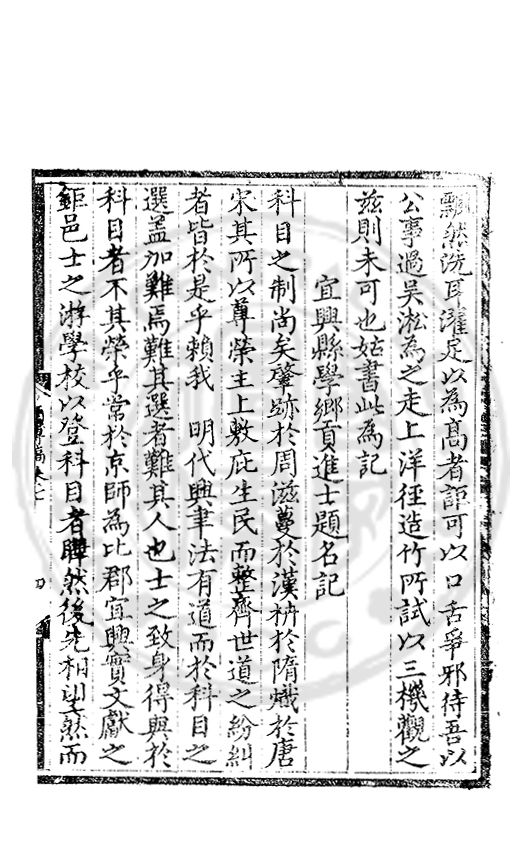 飄然洗耳濯足以為髙者詎可以口舌爭邪待吾以
公事過吳淞為之走上洋徑造竹所試以三機觀之
兹則未可也姑書此為記
宜興縣學鄉貢進士題名記
科目之制尚矣肇跡於周滋蔓於漢枿於隋熾於唐
宋其所以尊榮主上敷庇生民而整齊世道之紛糾
者皆於是乎賴我 明代興聿法有道而於科目之
選盖加難焉難其選者難其人也士之致身得與於
科目者不其榮乎常於京師為比郡宜興實文獻之
鉅邑士之游學校以登科目者曄然後先相望然而
卷七
四